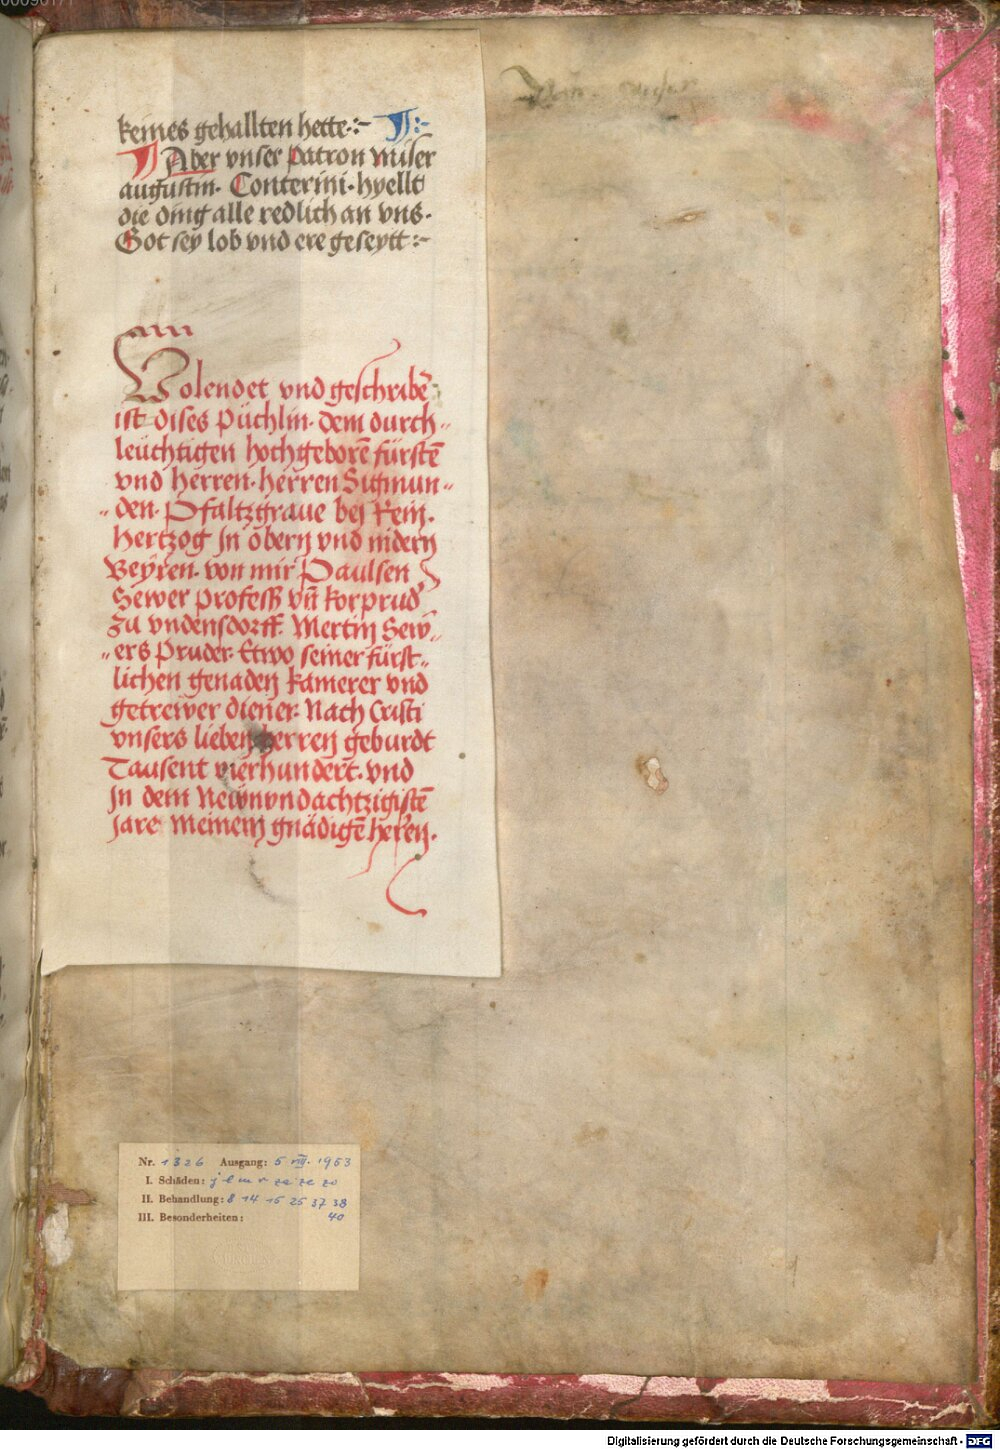 keines gehallten hette :~ ¶ :~
¶ Aber vnser patron miser
augustin· Conterini· hyellt
die ding alle redlich an vns·
Got sey lob vnd ere geseytt :~
Volendet vnd geschribē
ist dises Püchlin· dem durch„
leüchtigen hochgeborē fürstē
vnd herren· herren Sigmun„
„den· Pfaltzgraue bej Rein·
Hertzog In obern vnd nidern
Beyren· von mir Paulsen
Sewer professz vn̄ korprud̛
zu vndensdorff· Mertin Sew„
„ers Pruder· Etwo seiner fürst„
lichen genaden kamerer vnd
getrewer diener· Nach Cristi
vnsers lieben herren geburdt
Tausent vierhundert· vnd
In dem Newnvndachtzigistē
Jare Meinem gnädigē herren·
Nr. 1326 Ausgang: 5 VIII. 1953
I. Schäden:
II. Behandlung: 8 14 15 25 37 38
III. Besonderheiten: 40
Digitalisierung gefördert durch die Deutsche Forschungsgemeinschaft - DFG